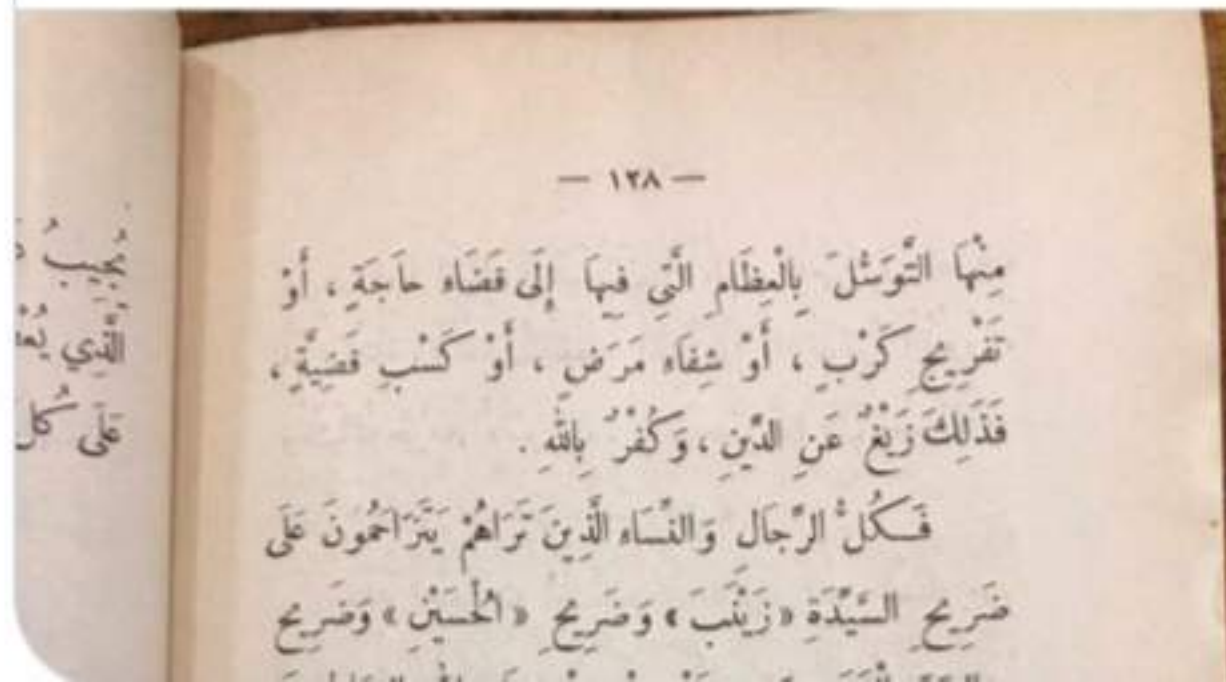 — ١٢٨ —
مِنْهَا التَّوَسُّلَ بِالْعِظَامِ الَّتِي فِيهَا إِلَى قَضَاءِ حَاجَةٍ ، أَوْ
تَفْرِيجِ كَرْبٍ ، أَوْ شِفَاءِ مَرَضٍ ، أَوْ كَسْبِ قَضِيَّةٍ ،
فَذَلِكَ زَيْغٌ عَنِ الدِّينِ ، وَكُفْرٌ بِاللهِ .
فَكُلُّ الرِّجَالِ وَالنِّسَاءِ الَّذِينَ تَرَاهُمْ يَتَزَاحَمُونَ عَلَى
ضَرِيحِ السَّيِّدَةِ « زَيْنَبَ » وَضَرِيحِ « الْحُسَيْنِ » وَضَرِيحِ
يُجِيبُ
الَّذِي
عَلَى كُل